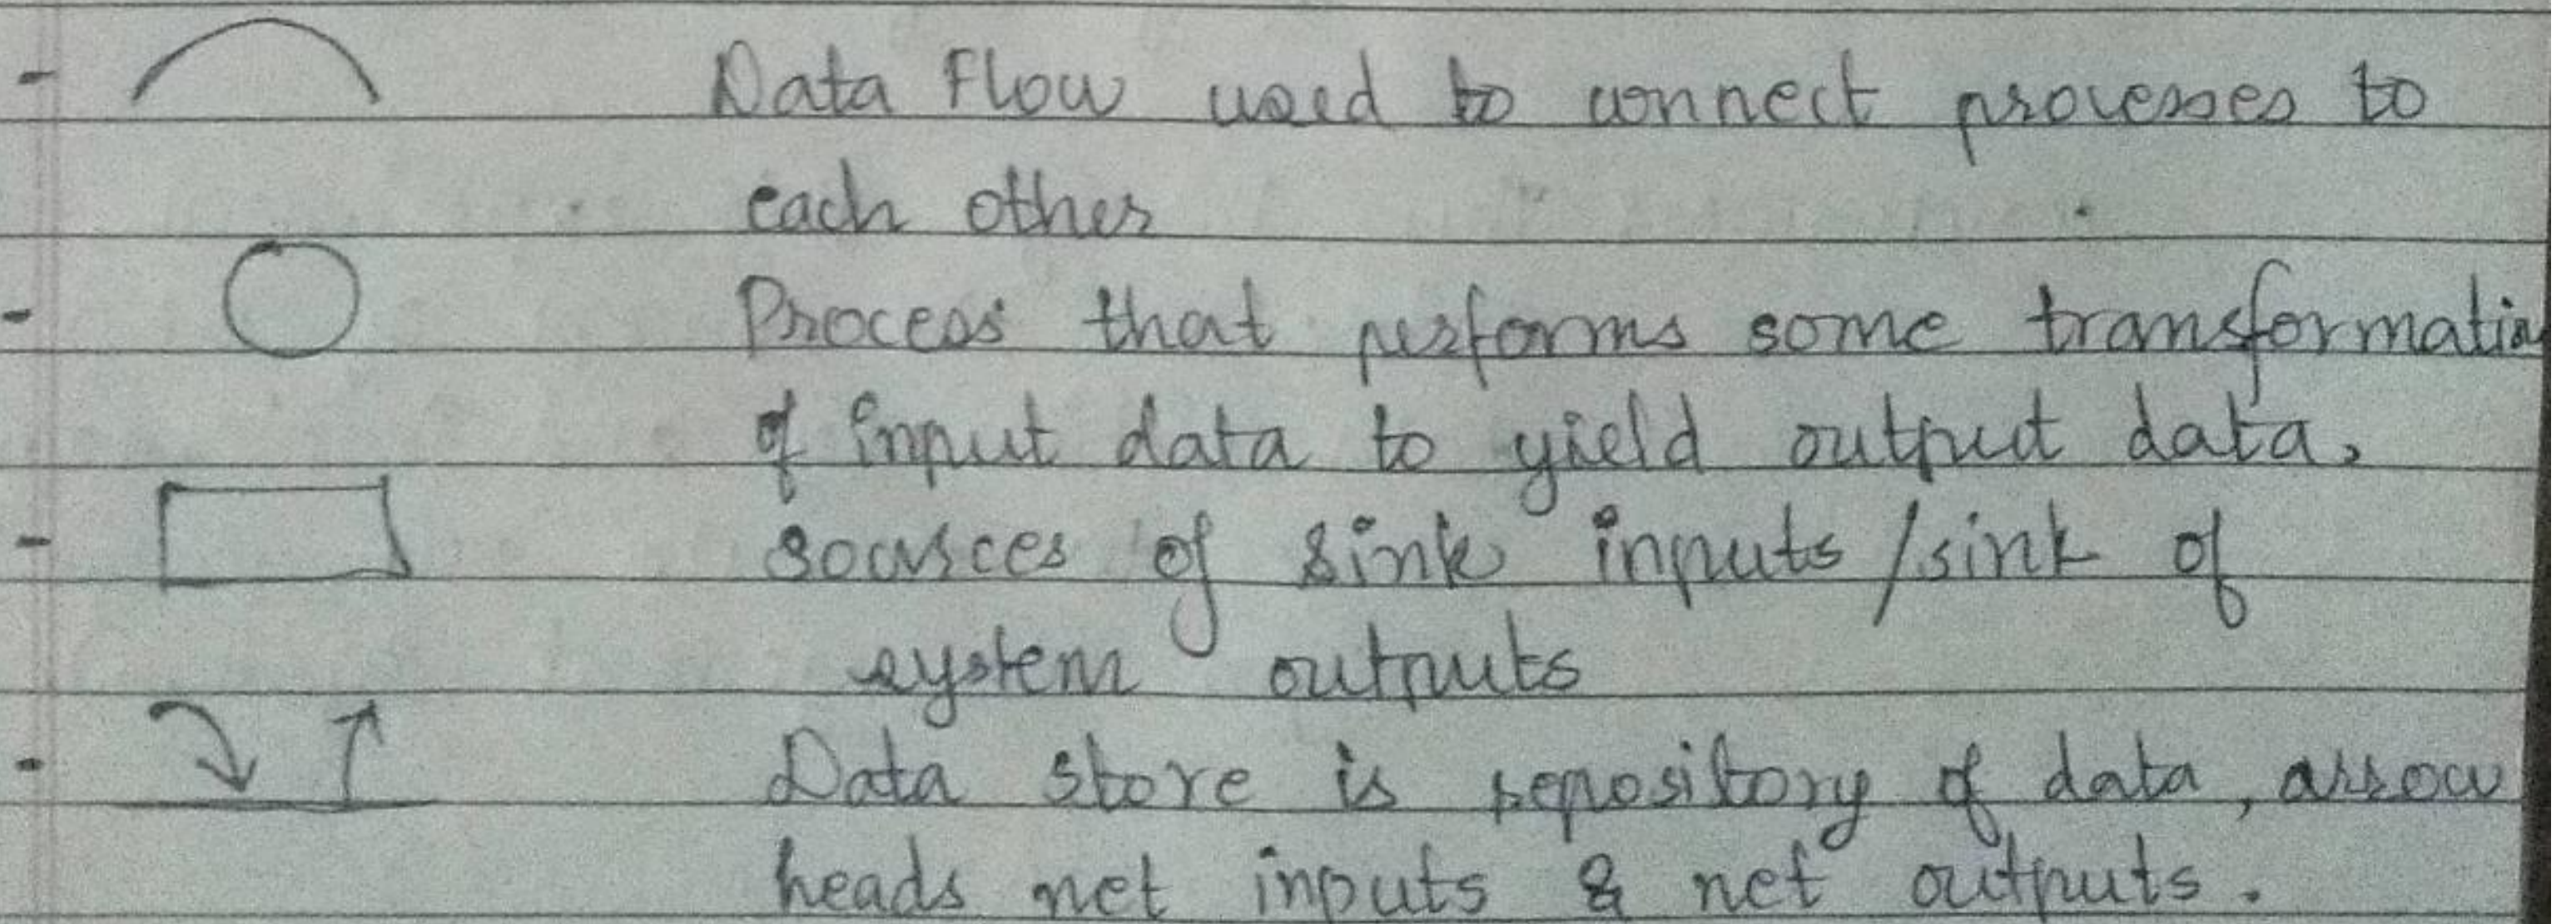 - Data Flow used to connect processes to
each other
- Process that performs some transformation
of input data to yield output data,
- sources of sink inputs / sink of
system outputs
- Data store is repository of data, arrow
heads net inputs & net outputs.